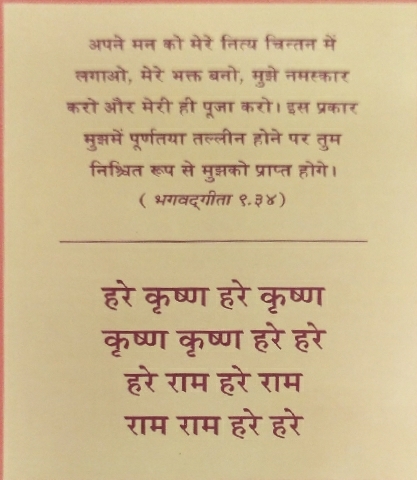 अपने मन को मेरे नित्य चिन्तन में
लगाओ, मेरे भक्त बनो, मुझे नमस्कार
करो और मेरी ही पूजा करो। इस प्रकार
मुझमें पूर्णतया तल्लीन होने पर तुम
निश्चित रूप से मुझको प्राप्त होगे।
( भगवद्‌गीता ९.३४)
हरे कृष्ण हरे कृष्ण
कृष्ण कृष्ण हरे हरे
हरे राम हरे राम
राम राम हरे हरे